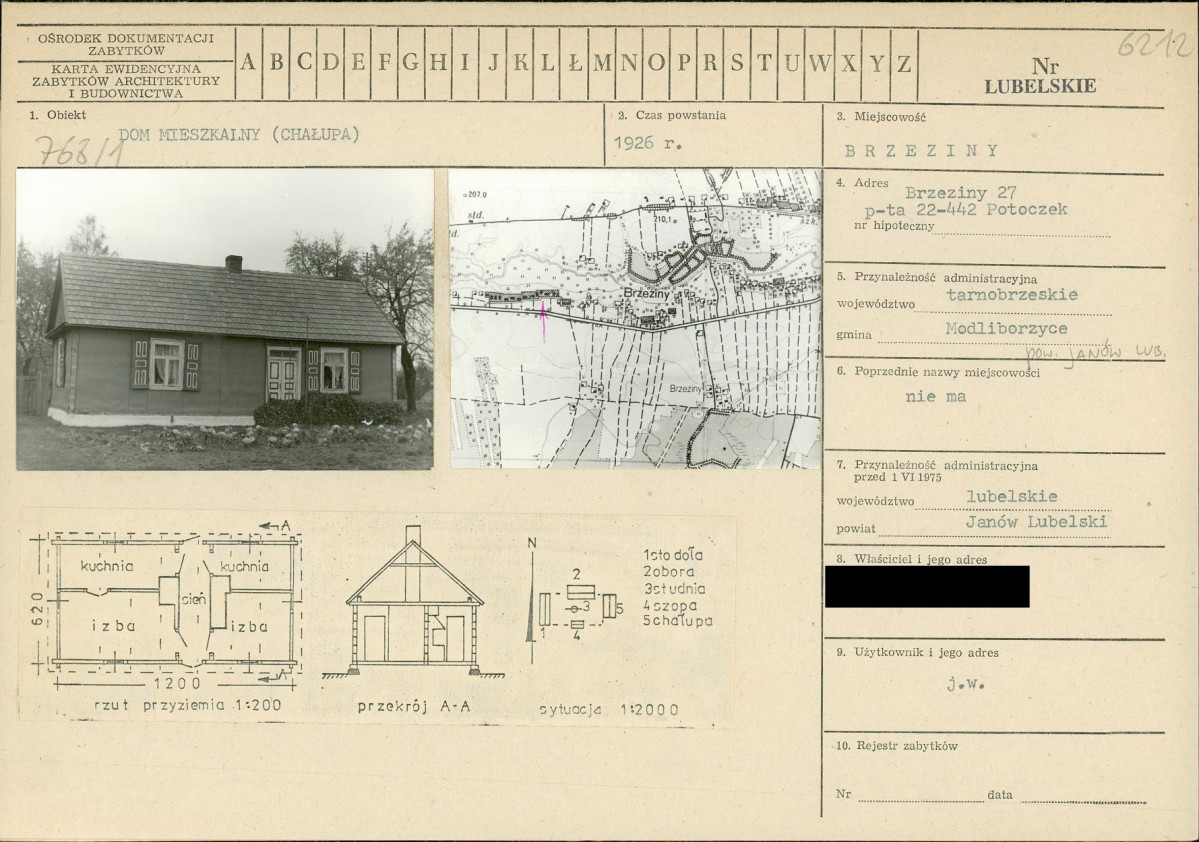 OŚRODEK DOKUMENTACJI
ZABYTKÓW
KARTA EWIDENCYJNA
ZABYTKÓW ARCHITEKTURY
I BUDOWNICTWA
A B C D E F G H I J K L Ł M N O P R S T U W X Y Z
6212
Nr
LUBELSKIE
1. Obiekt
DOM MIESZKALNY (CHAŁUPA)
768/1
2. Czas powstania
1926 r.
3. Miejscowość
BRZEZINY
4. Adres
Brzeziny 27
p-ta 22-442 Potoczek
nr hipoteczny
5. Przynależność administracyjna
województwo tarnobrzeskie
gmina Modliborzyce
pow. JANÓW LUB.
6. Poprzednie nazwy miejscowości
nie ma
7. Przynależność administracyjna
przed 1 VI 1975
województwo lubelskie
powiat Janów Lubelski
8. Właściciel i jego adres
9. Użytkownik i jego adres
j.w.
10. Rejestr zabytków
Nr data
207,0
std.
210,1
Brzeziny
Brzeziny
A
kuchnia kuchnia
sień
izba izba
620
A
1200
rzut przyziemia 1:200
przekrój A-A
N
2
3
1
5
4
1 stodoła
2 obora
3 studnia
4 szopa
5 chałupa
sytuacja 1:2000